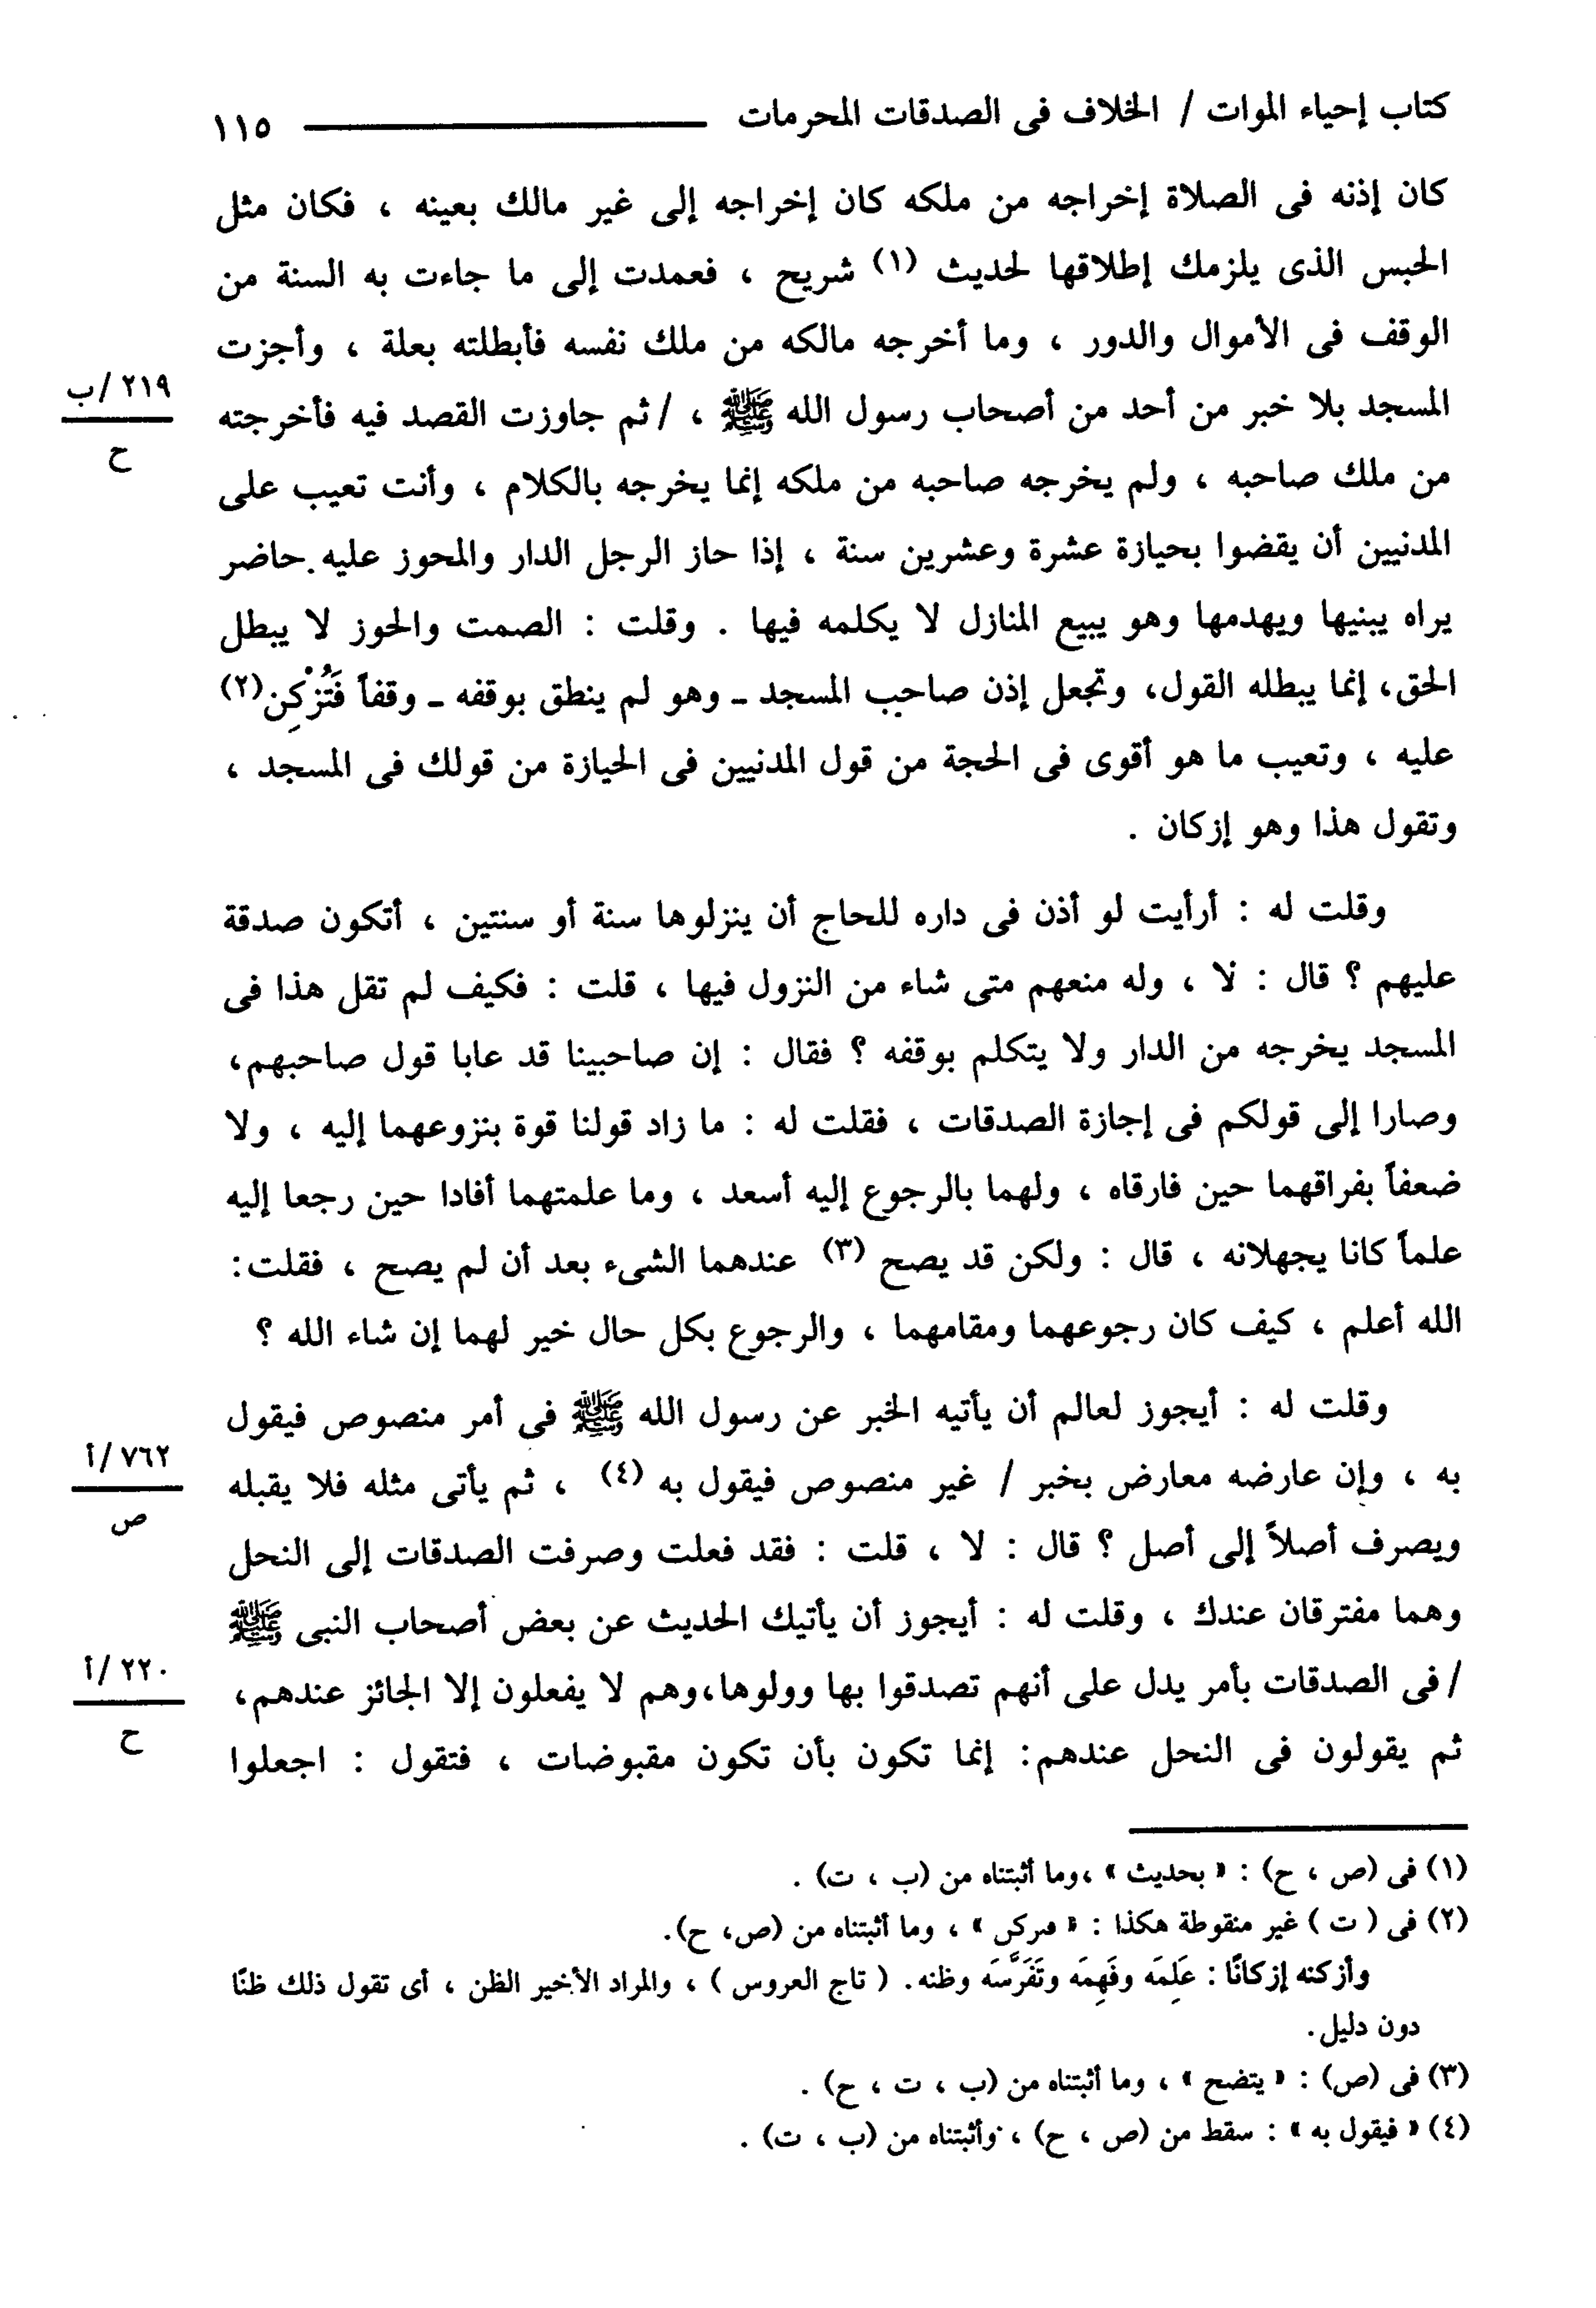 كتاب إحياء الموات / الخلاف فى الصدقات المحرمات ــــــــــــــ ١١٥
كان إذنه فى الصلاة إخراجه من ملكه كان إخراجه إلى غير مالك بعينه ، فكان مثل
الحبس الذى يلزمك إطلاقها لحديث (١) شريح ، فعمدت إلى ما جاءت به السنة من
الوقف فى الأموال والدور ، وما أخرجه مالكه من ملك نفسه فأبطلته بعلة ، وأجزت
المسجد بلا خبر من أحد من أصحاب رسول الله ﷺ ، / ثم جاوزت القصد فيه فأخرجته
٢١٩ /ب
ح
من ملك صاحبه ، ولم يخرجه صاحبه من ملكه إنما يخرجه بالكلام ، وأنت تعيب على
المدنيين أن يقضوا بحيازة عشرة وعشرين سنة ، إذا حاز الرجل الدار والمحوز عليه حاضر
يراه يبنيها ويهدمها وهو يبيع المنازل لا يكلمه فيها . وقلت : الصمت والحوز لا يبطل
الحق، إنما يبطله القول، وتجعل إذن صاحب المسجد ـ وهو لم ينطق بوقفه ـ وقفاً فَتُزْكِن(٢)
عليه ، وتعيب ما هو أقوى فى الحجة من قول المدنيين فى الحيازة من قولك فى المسجد ،
وتقول هذا وهو إزكان .
وقلت له : أرأيت لو أذن فى داره للحاج أن ينزلوها سنة أو سنتين ، أتكون صدقة
عليهم ؟ قال : لا ، وله منعهم متى شاء من النزول فيها ، قلت : فكيف لم تقل هذا فى
المسجد يخرجه من الدار ولا يتكلم بوقفه ؟ فقال : إن صاحبينا قد عابا قول صاحبهم،
وصارا إلى قولكم فى إجازة الصدقات ، فقلت له : ما زاد قولنا قوة بنزوعهما إليه ، ولا
ضعفاً بفراقهما حين فارقاه ، ولهما بالرجوع إليه أسعد ، وما علمتهما أفادا حين رجعا إليه
علماً كانا يجهلانه ، قال : ولكن قد يصح (٣) عندهما الشىء بعد أن لم يصح ، فقلت:
الله أعلم ، كيف كان رجوعهما ومقامهما ، والرجوع بكل حال خير لهما إن شاء الله ؟
وقلت له : أيجوز لعالم أن يأتيه الخبر عن رسول الله ﷺ فى أمر منصوص فيقول
به ، وإن عارضه معارض بخبر / غير منصوص فيقول به (٤) ، ثم يأتى مثله فلا يقبله
٧٦٢ /أ
ص
ويصرف أصلاً إلى أصل ؟ قال : لا ، قلت : فقد فعلت وصرفت الصدقات إلى النحل
وهما مفترقان عندك ، وقلت له : أيجوز أن يأتيك الحديث عن بعض أصحاب النبى ﷺ
/ فى الصدقات بأمر يدل على أنهم تصدقوا بها وولوها،وهم لا يفعلون إلا الجائز عندهم،
٢٢٠ /أ
ح
ثم يقولون فى النحل عندهم: إنما تكون بأن تكون مقبوضات ، فتقول : اجعلوا
(١) فى (ص ، ح) : « بحديث » ،وما أثبتناه من (ب ، ت) .
(٢) فى ( ت ) غير منقوطة هكذا : « ڡٮرکں » ، وما أثبتناه من (ص، ح).
وأزكنه إزكانًا : عَلِمَه وفَهِمَه وتَفَرَّسَه وظنه. ( تاج العروس ) ، والمراد الأخير الظن ، أى تقول ذلك ظنًا
دون دليل.
(٣) فى (ص) : « يتضح » ، وما أثبتناه من (ب ، ت ، ح) .
(٤) « فيقول به » : سقط من (ص ، ح) ، وأثبتناه من (ب ، ت) .